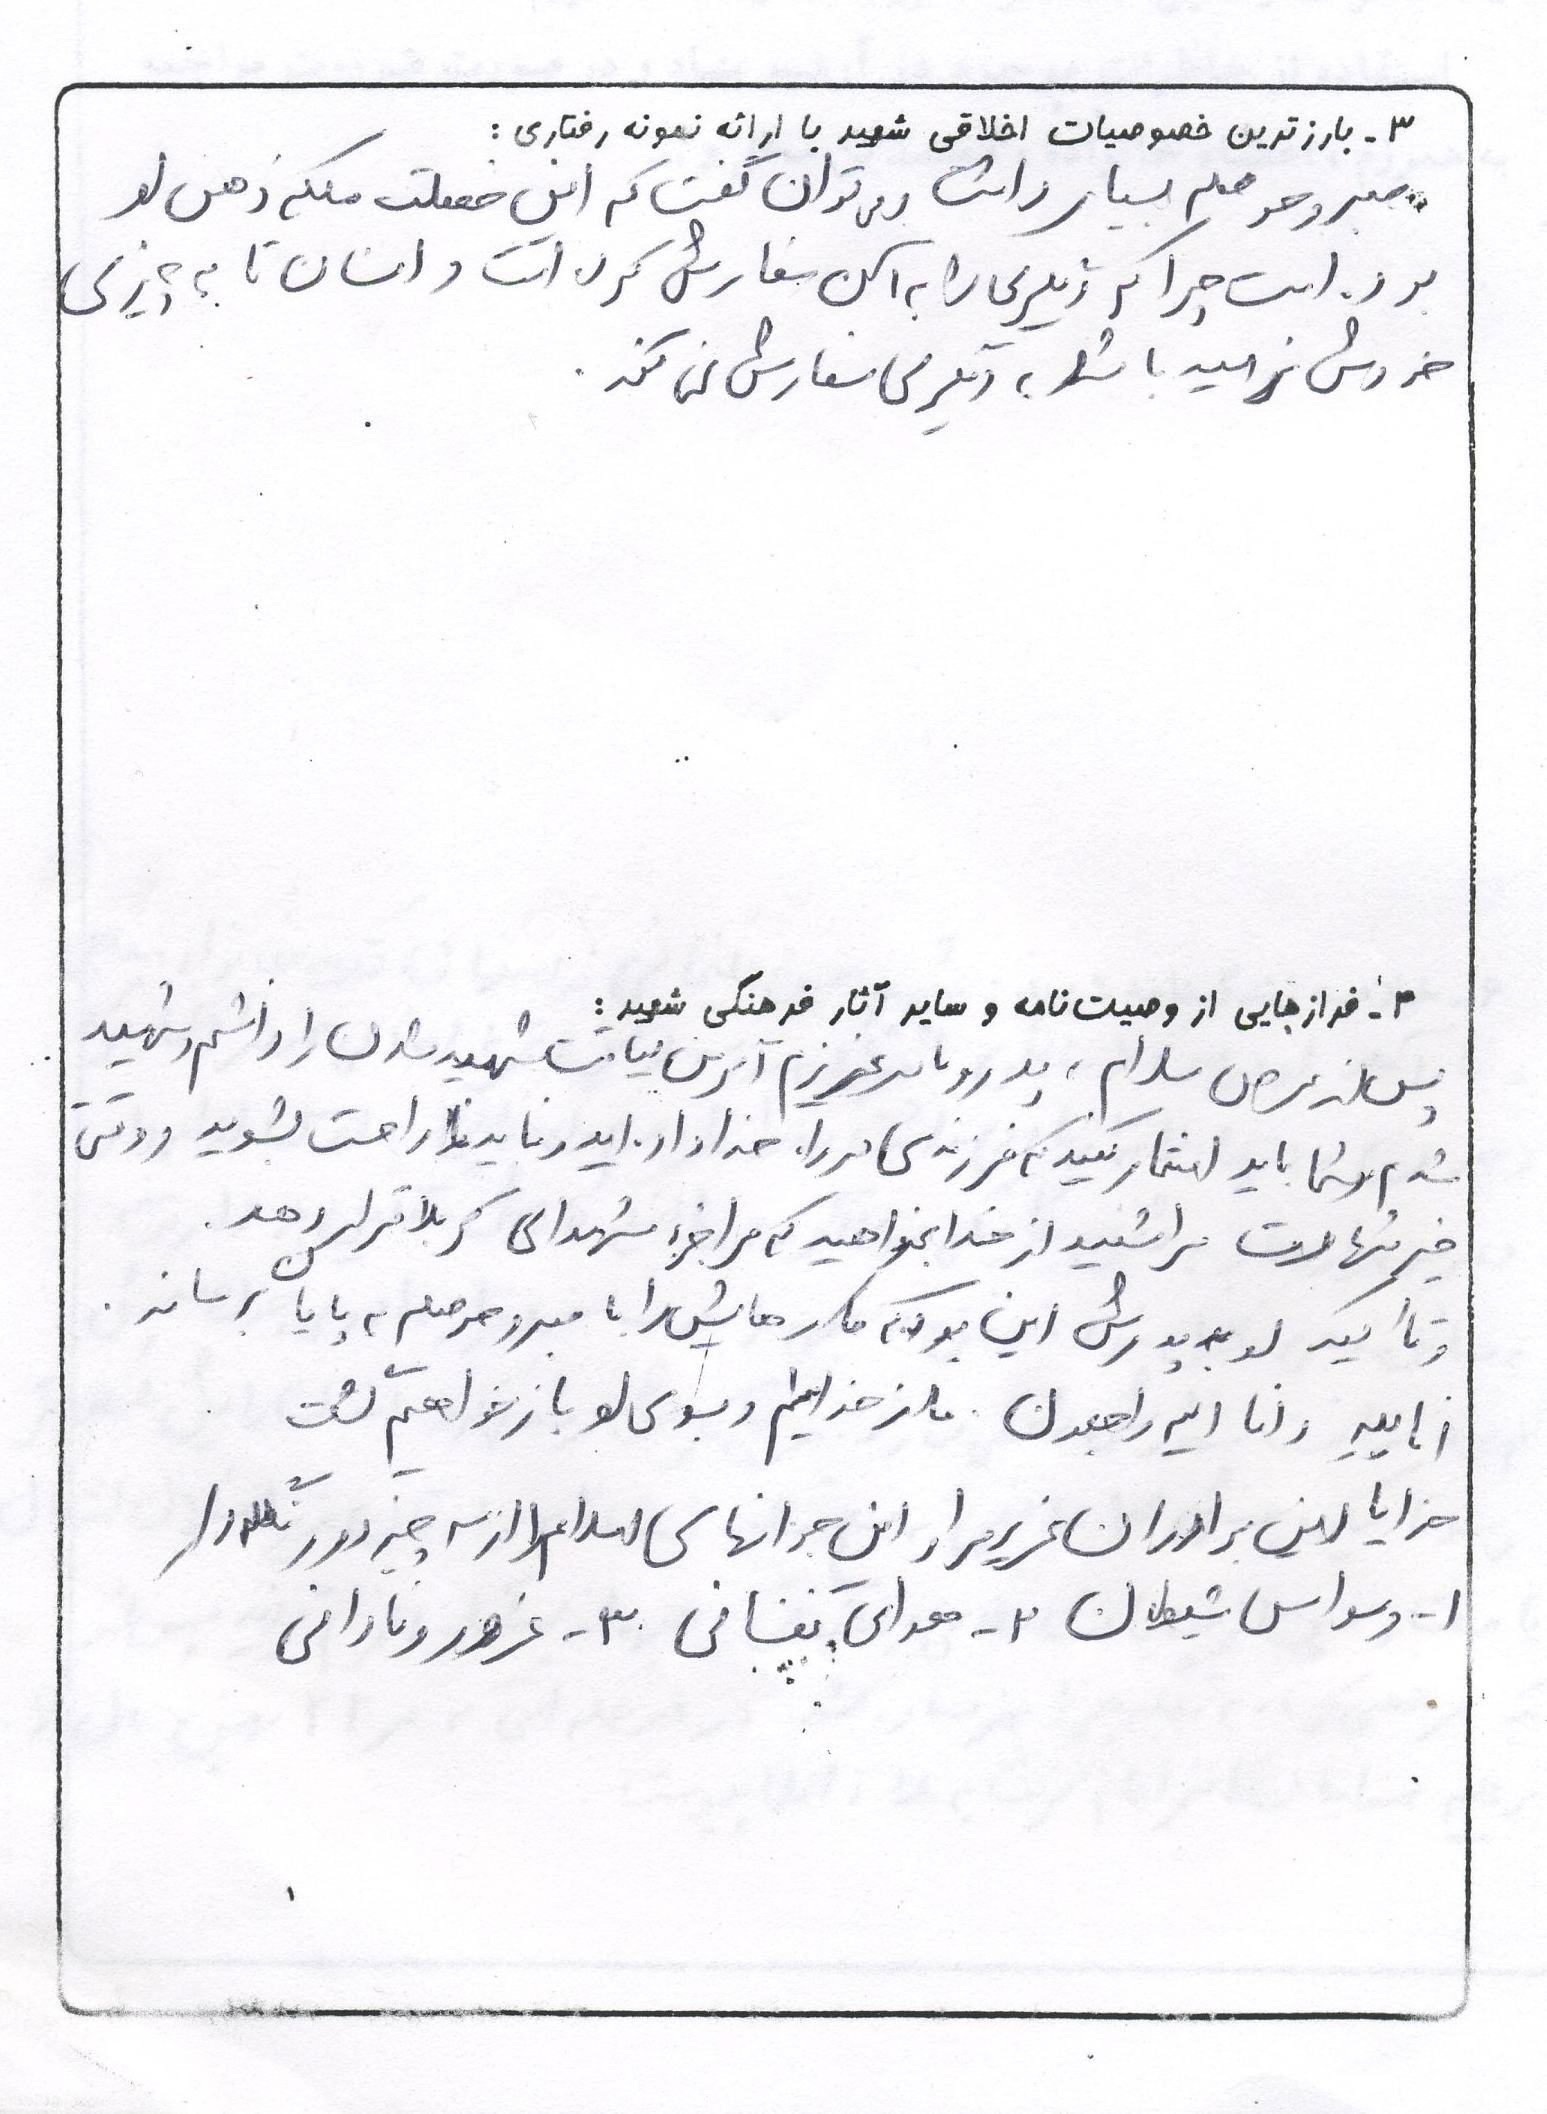 ۳- بارزترین خصوصیات اخلاقی شهید با ارائه نمونه رفتاری :
صبر و حوصله بسیار داشت و می توان گفت که این خصلت ملکه ذهن او
بوده است چرا که دیگری را به آن سفارش کرده است و انسان تا به چیزی
خودش نرسیده باشد به دیگری سفارش نمی کند .
۴- فرازهایی از وصیت‌نامه و سایر آثار فرهنگی شهید :
پس از عرض سلام ، پدر و مادر عزیزم شهید شدن را داشتم و شهید
شدم و شما باید افتخار کنید که فرزندی در راه خدا داده اید و نباید ناراحت بشوید و وقتی
خبر شهادت مرا شنیدید از خدا بخواهید که مرا جزء شهدای کربلا قرار دهد .
و تأکید او به پدرش این بود که کارهایش را با صبر و حوصله به پایان برساند .
انا لله و انا الیه راجعون . ما از خداییم و بسوی او باز خواهیم گشت
خدایا این برادران عزیز مرا و این جوانهای اسلام را از سه چیز دور نگهدار
۱- وسواس شیطان ۲- هوای نفسانی ۳- غرور و نادانی